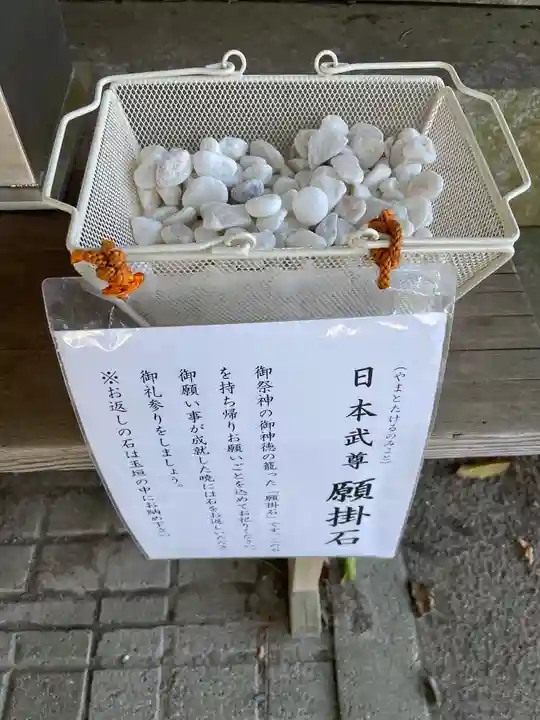 (やまとたけるのみこと)
日本武尊 願掛石
御祭神の御神徳の籠った「願掛石」です。この石
を持ち帰りお願いごとを込めてお祀り下さい。
御願い事が成就した暁には石をお返しいただき
御礼参りをしましょう。
※お返しの石は玉垣の中にお納め下さい。